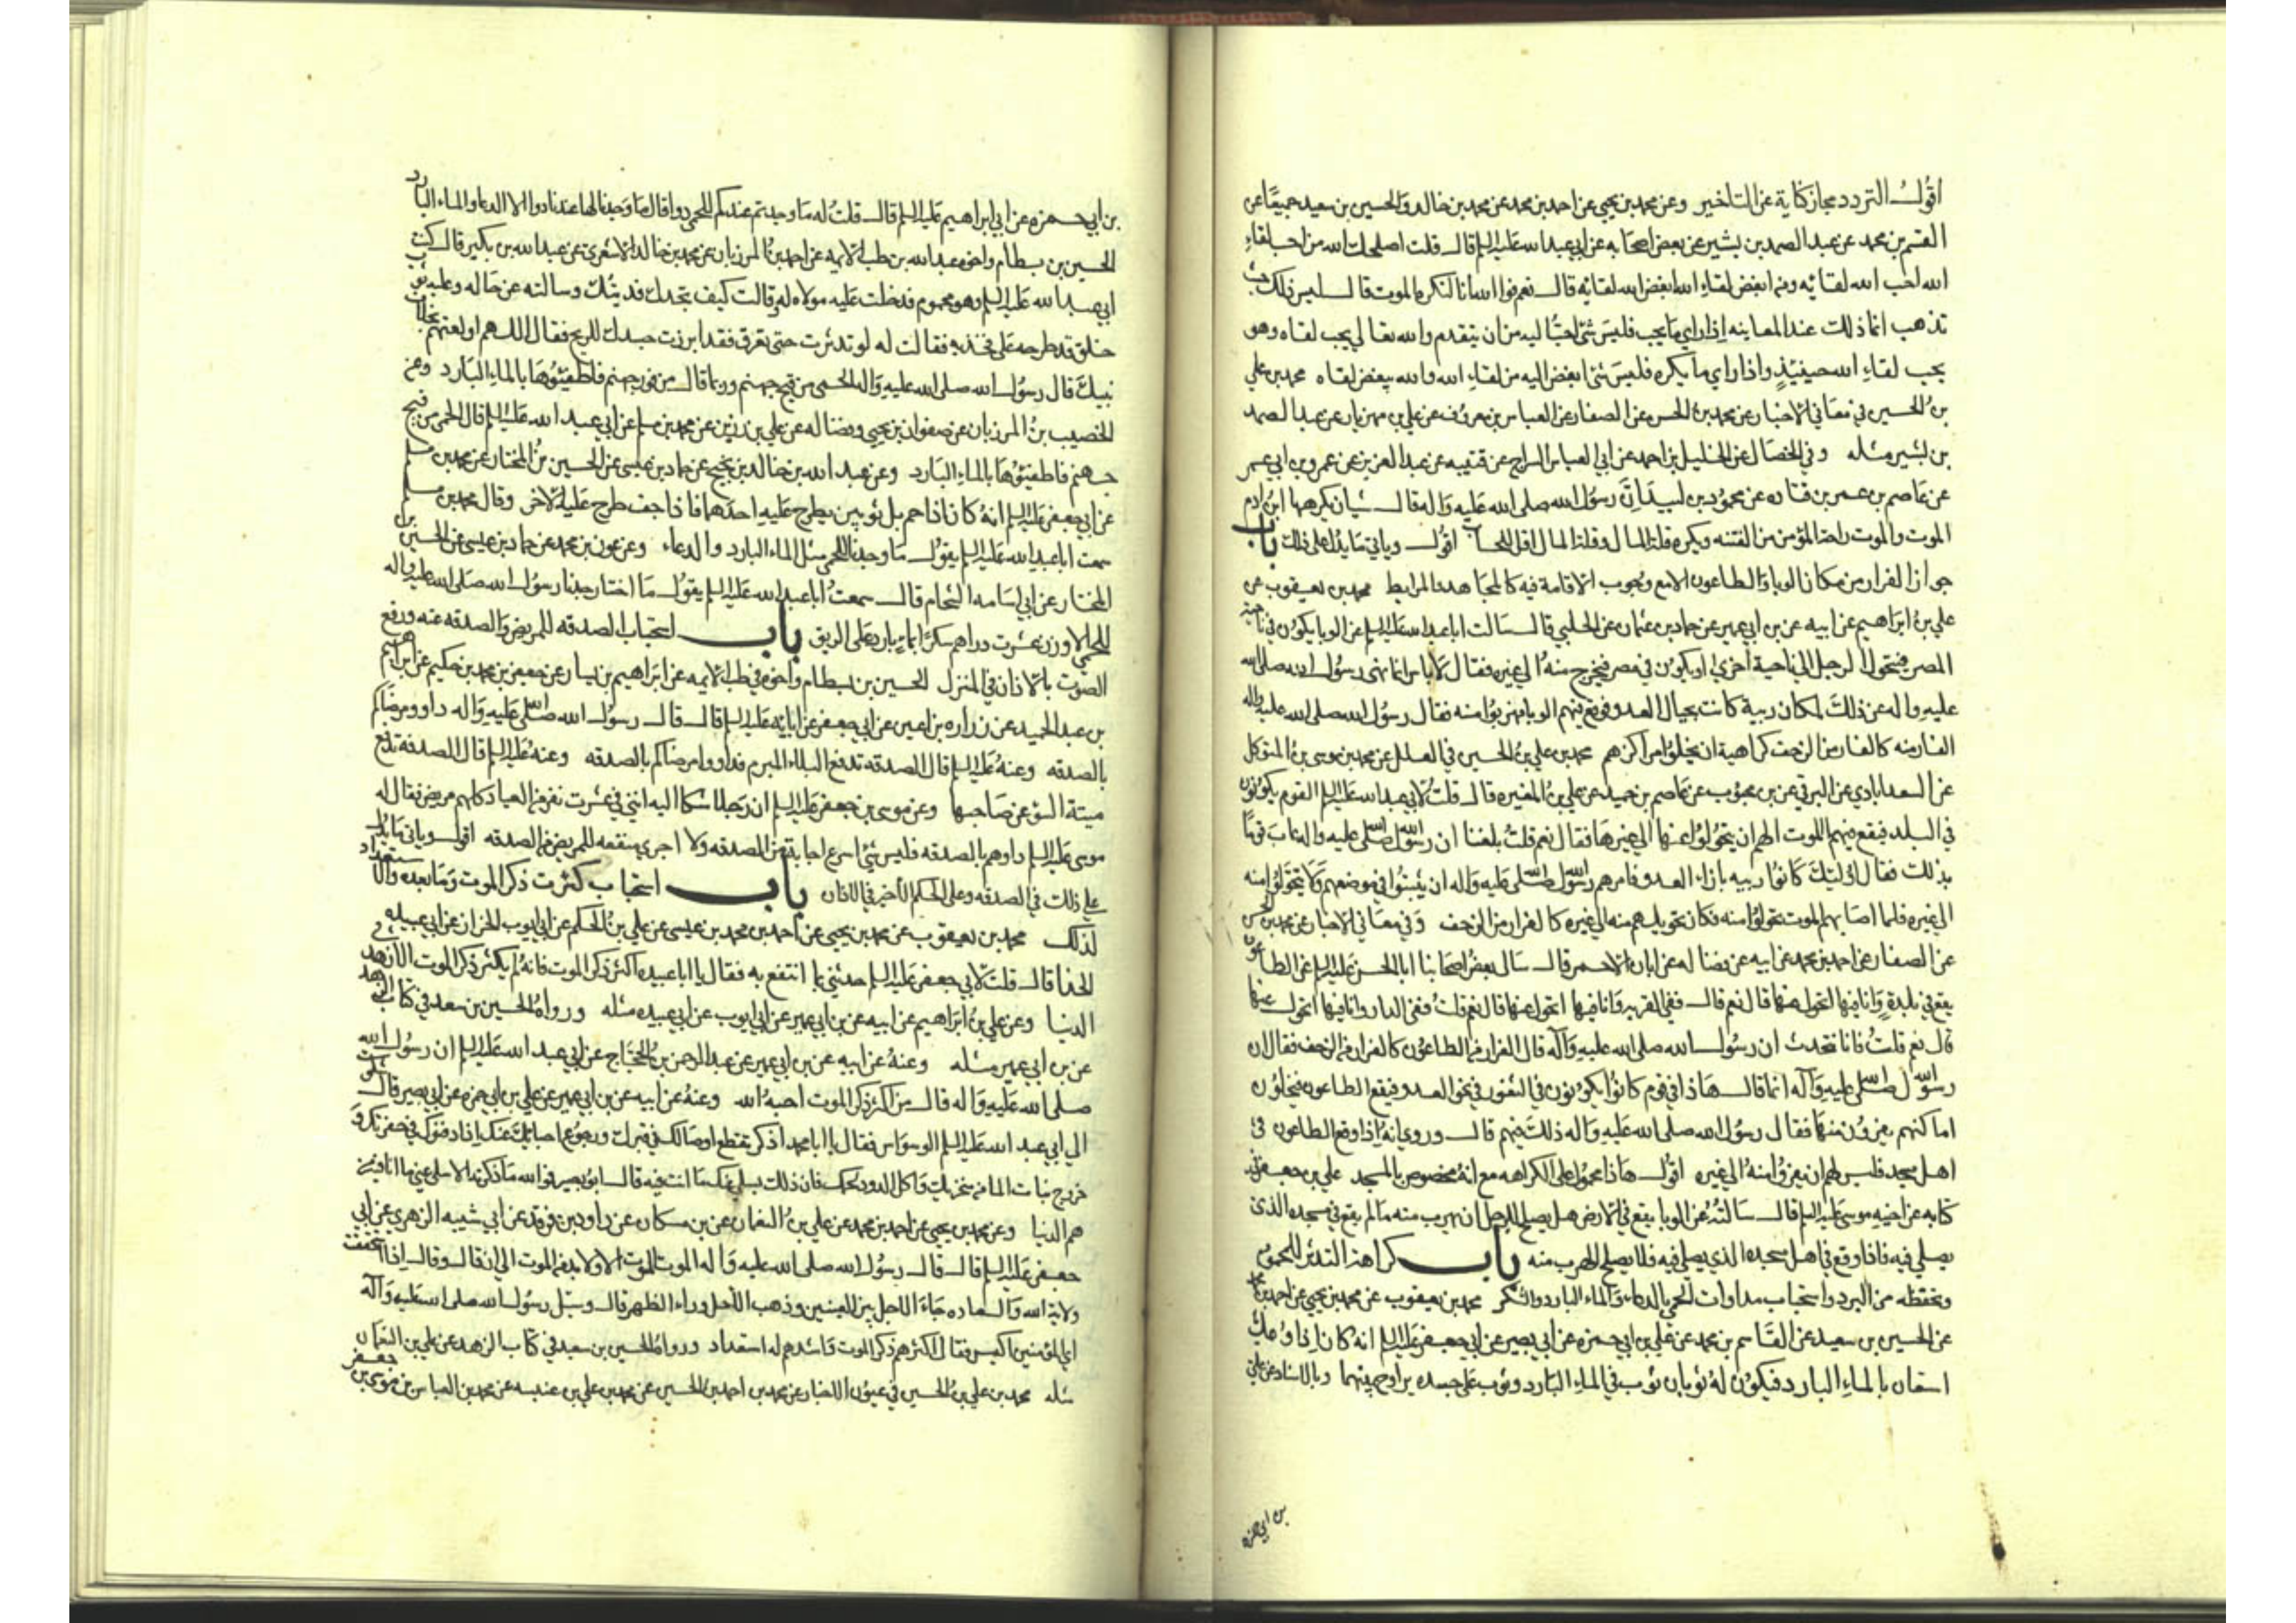 اقول التردد مجاز كناية عن التاخير وعن محمد بن يحيى عن احمد بن محمد عن محمد بن خالد والحسين بن سعيد جميعًا عن
القسم بن محمد عن عبد الصمد بن بشير عن بعض اصحابه عن ابي عبد الله عليه السلم قال قلت اصلحك الله من احب لقاء
الله احب الله لقائه ومن ابغض لقاء الله ابغض الله لقائه قال نعم فوالله انا لنكره الموت قال ليس ذلك حيث
تذهب انما ذلك عند المعاينه اذا راى ما يحب فليس شئ احب اليه من ان يتقدم والله تعالى يحب لقاه وهو
يحب لقاء الله حينئذٍ واذا راى ما يكره فليس شئ ابغض اليه من لقاء الله والله يبغض لقاه محمد بن علي
بن الحسين في معاني الاخبار عن محمد بن الحسن عن الصفار عن العباس بن معروف عن علي بن مهزيار عن عبد الصمد
بن بشير مثله وفي الخصال عن الخليل بن احمد عن ابي العباس السراج عن قتيبه عن عبد العزيز عن عمرو بن ابي عمر
عن عاصم بن عمر بن قتاده عن محمود بن لبيد ان رسول الله صلى الله عليه واله قال شيان يكرهها ابن ادم
الموت والموت راحة المؤمن من الفتنه ويكره قلة المال وقلة المال اقل للحساب اقول وياتي ما يدل على ذلك باب
جواز الفرار من مكان الوبا والطاعون الا مع وجوب الاقامة فيه كالمجاهد والمرابط محمد بن يعقوب عن
علي بن ابراهيم عن ابيه عن بن ابي عمير عن حماد بن عثمان عن الحلبي قال سالت ابا عبد الله عليه السلم عن الوبا يكون في ناحية
المصر فيتحول الرجل الى ناحية اخرى او يكون في مصر فيخرج منه الى غيره فقال لا باس انما نهى رسول الله صلى الله
عليه واله عن ذلك لمكان ربية كانت بحيال العدو فوقع فيهم الوبا فهربوا منه فقال رسول الله صلى الله عليه واله
الفار منه كالفار من الزحف كراهية ان يخلوا مراكزهم محمد بن علي بن الحسين في العلل عن محمد بن موسى بن المتوكل
عن السعدابادي عن البرقي عن بن محبوب عن عاصم بن حميد عن علي بن المغيره قال قلت لابي عبد الله عليه السلم القوم يكونون
في البلد فيقع فيهم الموت الهم ان يتحولوا عنها الى غيرها فقال نعم قلت بلغنا ان رسول الله صلى الله عليه واله عاب قومًا
بذلك فقال اولئك كانوا ربيه بازاء العدو فامرهم رسول الله صلى الله عليه واله ان يثبتوا في موضعهم ولا يتحولوا منه
الى غيره فلما اصابهم الموت تحولوا منه فكان تحويلهم منه الى غيره كالفرار من الزحف وفي معاني الاخبار عن محمد بن الحسن
عن الصفار عن احمد بن محمد عن ابيه عن فضاله عن ابان الاحمر قال سال بعض اصحابنا ابا الحسن عليه السلم عن الطاعون
يقع في بلدةٍ وانا فيها اتحول عنها قال نعم قال ففي القريه وانا فيها اتحول عنها قال نعم قلت ففي الدار وانا فيها اتحول عنها
قال نعم قلت فانا نتحدث ان رسول الله صلى الله عليه وآله قال الفرار من الطاعون كالفرار من الزحف فقال ان
رسول الله صلى الله عليه وآله انما قال هاذا في قوم كانوا يكونون في الثغور في نحو العدو فيقع الطاعون فيخلون
اماكنهم يفرون منها فقال رسول الله صلى الله عليه واله ذلك فيهم قال وروي انه اذا وقع الطاعون في
اهل مسجد فليس لهم ان يفروا منه الى غيره اقول هاذا محمول على الكراهه مع انه مخصوص بالمسجد علي بن جعفر في
كتابه عن اخيه موسى عليه السلم قال سالته عن الوبا يقع في الارض هل يصلح للرجل ان يهرب منه ما لم يقع في مسجده الذي
يصلي فيه فاذا وقع في اهل مسجده الذي يصلي فيه فلا يصلح الهرب منه باب كراهة التدثر للمحموم
وتحفظه من البرد واستحباب مداوات الحمى بالدعاء والماء البارد والسكر محمد بن يعقوب عن محمد بن يحيى عن احمد بن محمد
عن الحسين بن سعيد عن القاسم بن محمد عن علي بن ابي حمزه عن ابي بصير عن ابي جعفر عليه السلم انه كان اذا وعك
استعان بالماء البارد فيكون له ثوبان ثوب في الماء البارد وثوب على جسده يراوح بينهما وبالاسناد عن علي
بن ابي حمزه
بن ابي حمزه عن ابي ابراهيم عليه السلم قال قلت له ما وجدتم عندكم للحمى دوا قال ما وجدنا لها عندنا دوا الا الدعا والماء البارد
الحسين بن بسطام واخوه عبد الله بن طب الايمه عن احمد بن المرزبان عن محمد بن خالد الاشعري عن عبد الله بن بكير قال كنت
ابي عبد الله عليه السلم وهو محموم فدخلت عليه مولاه له وقالت كيف تجدك فديتك وسالته عن حاله وعليه ثوب
خلق قد طرحه على فخذيه فقالت له لو تدثرت حتى تعرق فقد ابرزت جسدك للريح فقال اللهم
نبيك قال رسول الله صلى الله عليه واله الحمى من فيح جهنم وربما قال من فور جهنم فاطفئوها بالماء البارد وعن
الخصيب بن المرزبان عن صفوان بن يحيى وفضاله عن علي بن رزين عن محمد بن مسلم عن ابي عبد الله عليه السلم قال الحمى من فيح
جهنم فاطفئوها بالماء البارد وعن عبد الله بن خالد بن نجيح عن حماد بن عيسى عن الحسين بن المختار عن محمد بن مسلم
عن ابي جعفر عليه السلم انه كان اذا حم بل ثوبين يطرح عليه احدهما فاذا جف طرح عليه الاخر وقال محمد بن مسلم
سمعت ابا عبد الله عليه السلم يقول ما وجدنا للحمى مثل الماء البارد والدعاء وعن عون بن محمد عن حماد بن عيسى عن الحسين بن
المختار عن ابي اسامه الشحام قال سمعت ابا عبد الله عليه السلم يقول ما اختار جدنا رسول الله صلى الله عليه واله
للحمى الا وزن عشرت دراهم سكرًا بماء بارد على الريق باب استحباب الصدقه للمريض والصدقه عنه ورفع
الصوت بالاذان في المنزل الحسين بن بسطام واخوه في طب الايمه عن ابراهيم بن يسار عن جعفر بن محمد بن حكيم عن ابراهيم
بن عبد الحميد عن زراره بن اعين عن ابي جعفر عن ابايه عليه السلم قال قال رسول الله صلى الله عليه واله داوو مرضاكم
بالصدقه وعنه عليه السلم قال الصدقه تدفع البلاء المبرم فداووا مرضاكم بالصدقه وعنه عليه السلم قال الصدقه تدفع
ميتة السؤ عن صاحبها وعن موسى بن جعفر عليه السلم ان رجلا شكا اليه انني في عشرت نفر من العيال كلهم مريض فقال له
موسى عليه السلم داوهم بالصدقه فليس شئ اسرع اجابة من الصدقه ولا اجرى منفعه للمريض من الصدقه اقول وياتي ما يدل
على ذلك في الصدقه وعلى الحكم الاخير في الاذان باب استحباب كثرت ذكر الموت وما بعده والاستعداد
لذلك محمد بن يعقوب عن محمد بن يحيى عن احمد بن محمد بن عيسى عن علي بن الحكم عن ابي ايوب الخزاز عن ابي عبيده
الحذا قال قلت لابي جعفر عليه السلم حدثني بما انتفع به فقال يا ابا عبيده اكثر ذكر الموت فانه لم يكثر ذكر الموت الا زهد في
الدنيا وعن علي بن ابراهيم عن ابيه عن بن ابي عمير عن ابي ايوب عن ابي عبيده مثله ورواه الحسين بن سعيد في كتاب الزهد
عن بن ابي عمير مثله وعنه عن ابيه عن بن ابي عمير عن عبد الرحمن بن الحجاج عن ابي عبد الله عليه السلم ان رسول الله
صلى الله عليه واله قال من اكثر ذكر الموت احبه الله وعنه عن ابيه عن بن ابي عمير عن علي بن ابي حمزه عن ابي بصير قال شكوت
الى ابي عبد الله عليه السلم الوسواس فقال يا ابا محمد اذكر تقطع اوصالك في قبرك ورجوع احبابك عنك اذا دفنوك في حفرتك و
خروج بنات الماء من منخريك واكل الدود لحمك فان ذلك يسلي عنك ما انت فيه قال ابو بصير فوالله ما ذكرته الا سلى عني ما انا فيه من
هم الدنيا وعن محمد بن يحيى عن احمد بن محمد عن علي بن النعمان عن بن مسكان عن داود بن فرقد عن ابي شيبه الزهري عن ابي
جعفر عليه السلم قال قال رسول الله صلى الله عليه واله الموت الموت الا ولا بد من الموت الى ان قال وقال اذا استحقت
ولاية الله والسعاده جاء الاجل بين العينين وذهب الامل وراء الظهر قال وسئل رسول الله صلى الله عليه وآله
اي المؤمنين اكيس فقال اكثرهم ذكر الموت واشدهم له استعداد ورواه الحسين بن سعيد في كتاب الزهد عن علي بن النعمان
مثله محمد بن علي بن الحسين في عيون الاخبار عن محمد بن احمد بن الحسين عن محمد بن علي بن عنبسه عن محمد بن العباس بن موسى بن جعفر